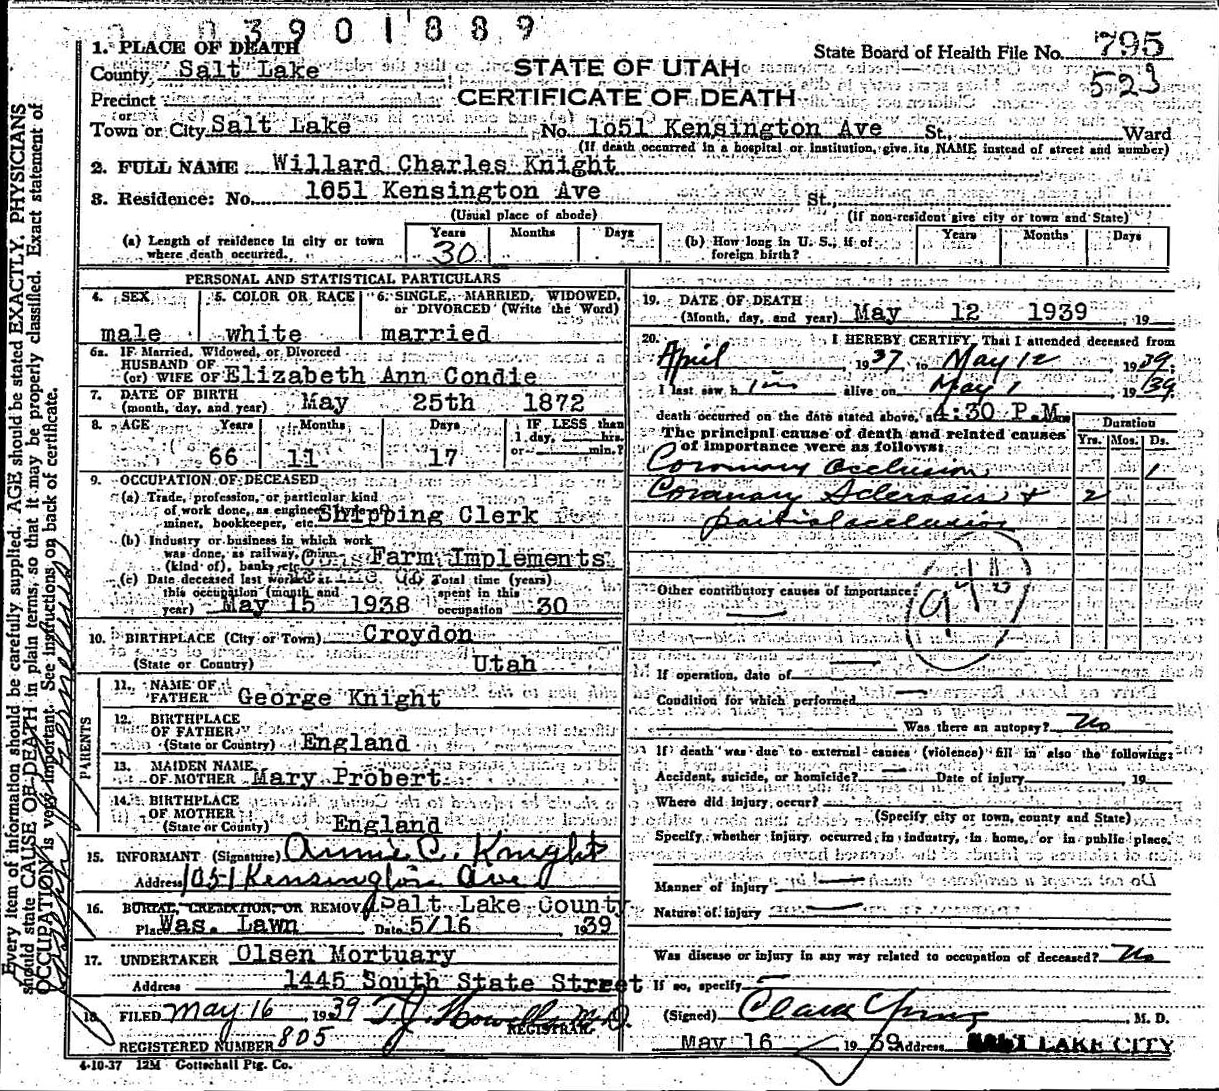 0 0 3 9 0 1 8 8 9
1. PLACE OF DEATH
County Salt Lake
STATE OF UTAH
State Board of Health File No. 795
523
Precinct
CERTIFICATE OF DEATH
Town or City Salt Lake No. 1051 Kensington Ave St., Ward
(If death occurred in a hospital or institution, give its NAME instead of street and number)
2. FULL NAME Willard Charles Knight
3. Residence: No. 1051 Kensington Ave St.,
(Usual place of abode) (If non-resident give city or town and State)
(a) Length of residence in city or town where death occurred. Years 30 Months Days
(b) How long in U. S., if of foreign birth? Years Months Days
PERSONAL AND STATISTICAL PARTICULARS
4. SEX male
5. COLOR OR RACE white
6. SINGLE, MARRIED, WIDOWED, or DIVORCED (Write the Word) married
6a. IF Married, Widowed, or Divorced
HUSBAND OF
(or) WIFE OF Elizabeth Ann Condie
7. DATE OF BIRTH
(month, day, and year) May 25th 1872
8. AGE Years 66 Months 11 Days 17
IF LESS than 1 day, hrs. or min.?
9. OCCUPATION OF DECEASED
(a) Trade, profession, or particular kind
of work done, as engineer,
miner, bookkeeper, etc. Shipping Clerk
(b) Industry or business in which work
was done, as railway,
(kind of), bank, etc. Cons. Farm Implements
(c) Date deceased last worked at
this occupation (month and
year) May 15 1938
Total time (years)
spent in this
occupation 30
10. BIRTHPLACE (City or Town) Croydon
(State or Country) Utah
PARENTS
11. NAME OF
FATHER George Knight
12. BIRTHPLACE
OF FATHER
(State or Country) England
13. MAIDEN NAME
OF MOTHER Mary Probert
14. BIRTHPLACE
OF MOTHER
(State or Country) England
15. INFORMANT (Signature) Annie C. Knight
Address 1051 Kensington Ave
16. BURIAL, CREMATION, OR REMOVAL Salt Lake County
Place Was. Lawn Date 5/16 1939
17. UNDERTAKER Olsen Mortuary
Address 1445 South State Street
18. FILED May 16 1939 T.J. Howells M.D.
REGISTRAR.
REGISTERED NUMBER 805
4-10-37 12M Gottschall Ptg. Co.
19. DATE OF DEATH
(Month, day, and year) May 12 1939, 19
20. I HEREBY CERTIFY, That I attended deceased from
April, 1937 to May 12 1939;
I last saw him alive on May 1, 1939,
death occurred on the date stated above, at 4:30 P.M.
The principal cause of death and related causes
of importance were as follows:
Duration
Yrs. Mos. Ds.
Coronary Occlusion 1
Coronary Sclerosis + 2
partial occlusion
Other contributory causes of importance:
94b
If operation, date of
Condition for which performed
Was there an autopsy? No
If death was due to external causes (violence) fill in also the following:
Accident, suicide, or homicide? Date of injury 19
Where did injury occur?
(Specify city or town, county and State)
Specify whether injury occurred in industry, in home, or in public place.
Manner of injury
Nature of injury
Was disease or injury in any way related to occupation of deceased? No
If so, specify
(Signed) Clark Young M. D.
May 16 1939 Address SALT LAKE CITY
Every item of information should be carefully supplied. AGE should be stated EXACTLY. PHYSICIANS
should state CAUSE OF DEATH in plain terms, so that it may be properly classified. Exact statement of
OCCUPATION is very important. See instructions on back of certificate.